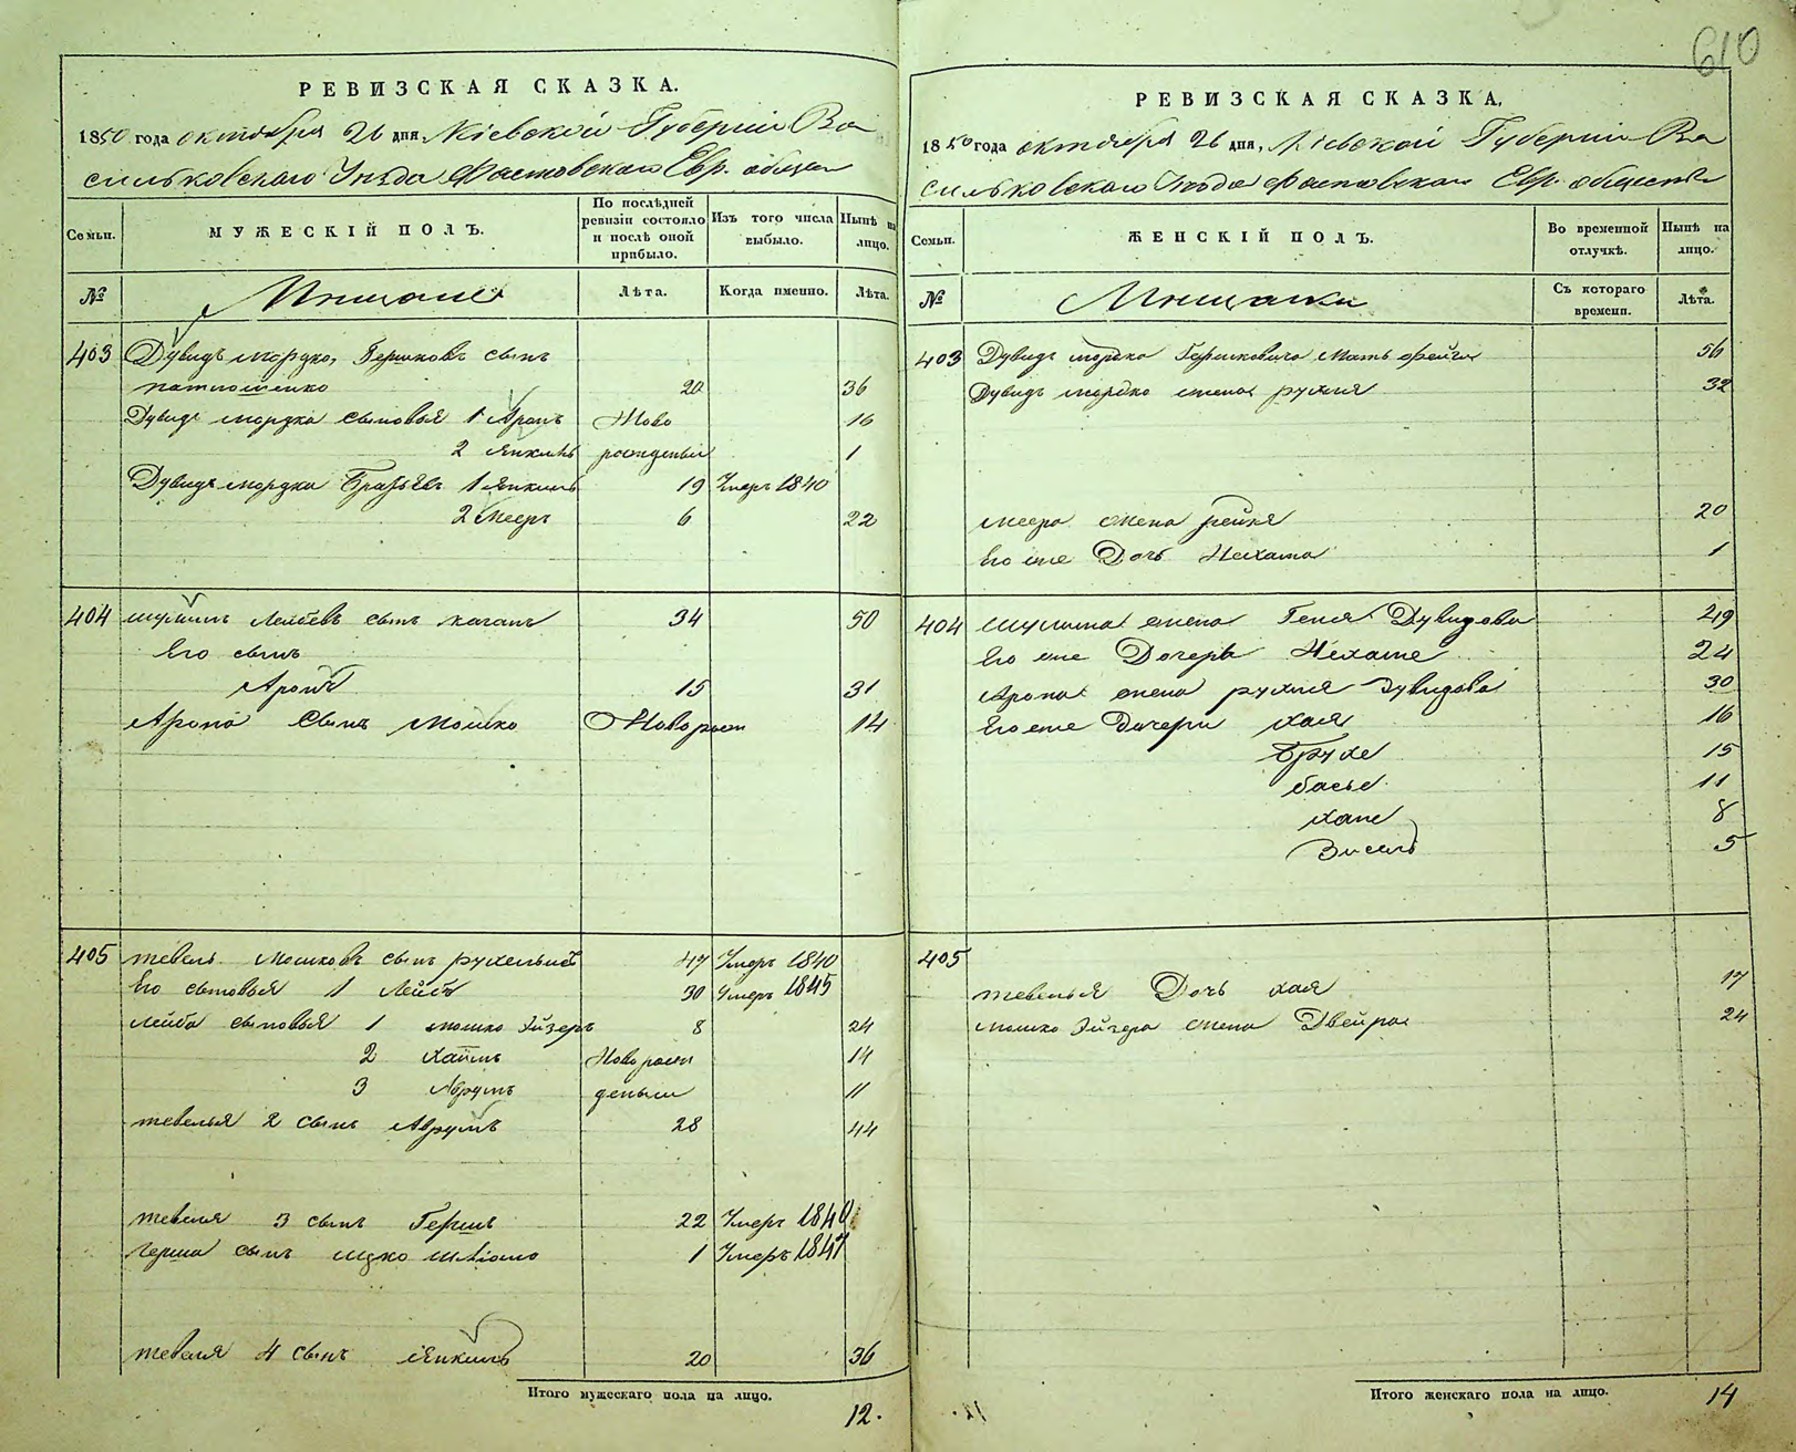 610
РЕВИЗСКАЯ СКАЗКА.
1850 года октября 26 дня, Кіевской Губерніи Ва
сильковскаго Уѣзда Фастовскаго Евр. общес
Семьи.
МУЖЕСКІЙ ПОЛЪ.
По послѣдней ревизіи состояло и послѣ оной прибыло.
Изъ того числа выбыло.
Нынѣ на лицо.
№
Мѣщане
Лѣта.
Когда именно.
Лѣта.
403 Дувидъ Мордко, Гершковъ сынъ
20 36
Дувидъ Мордка сыновья 1 Аронъ Ново 16
2 Янкель рожденныи 1
Дувидъ Мордка Братьевъ 1 Янкель 19 Умеръ 1840
2 Мееръ 6 22
404 Шулимъ Лейбевъ сынъ Каганъ 34 50
Его сынъ
Аронъ 15 31
Арона Сынъ Мошко Новорож 14
405 Тевель Мошковъ сынъ 47 Умеръ 1840
Его сыновья 1 Лейба 30 Умеръ 1845
Лейба сыновья 1 Мошко Эйзеръ 8 24
2 Хаимъ Новорож 14
3 Аврумъ деныи 11
Тевелья 2 сынъ Аврумъ 28 44
Тевеля 3 сынъ Гершъ 22 Умеръ 1840
Герша сынъ Ицко Шліомо 1 Умеръ 1847
Тевеля 4 сынъ Янкель 20 36
Итого мужескаго пола на лицо.
12.
РЕВИЗСКАЯ СКАЗКА.
1850 года октября 26 дня, Кіевской Губерніи Ва
сильковскаго Уѣзда Фастовскаго Евр. общества
Семьи.
ЖЕНСКІЙ ПОЛЪ.
Во временной отлучкѣ.
Нынѣ на лицо.
№
Мѣщанки
Съ котораго времени.
Лѣта.
403 Дувидъ Мордка Гершковича Мать Фейга 56
Дувидъ Мордко жена Рухля 32
Меера жена Рейзя 20
Его же Дочь Нехама 1
404 Шулима жена Геня Дувидова 49
Его же Дочерь Нехаме 24
Арона жена Рухля Дувидова 30
Его же Дочери Хая 16
Брухе 15
Басье 11
Хане 8
Зисель 5
405
Тевелья Дочь Хая 17
Мошко Эйзера жена Двейра 24
Итого женскаго пола на лицо.
14